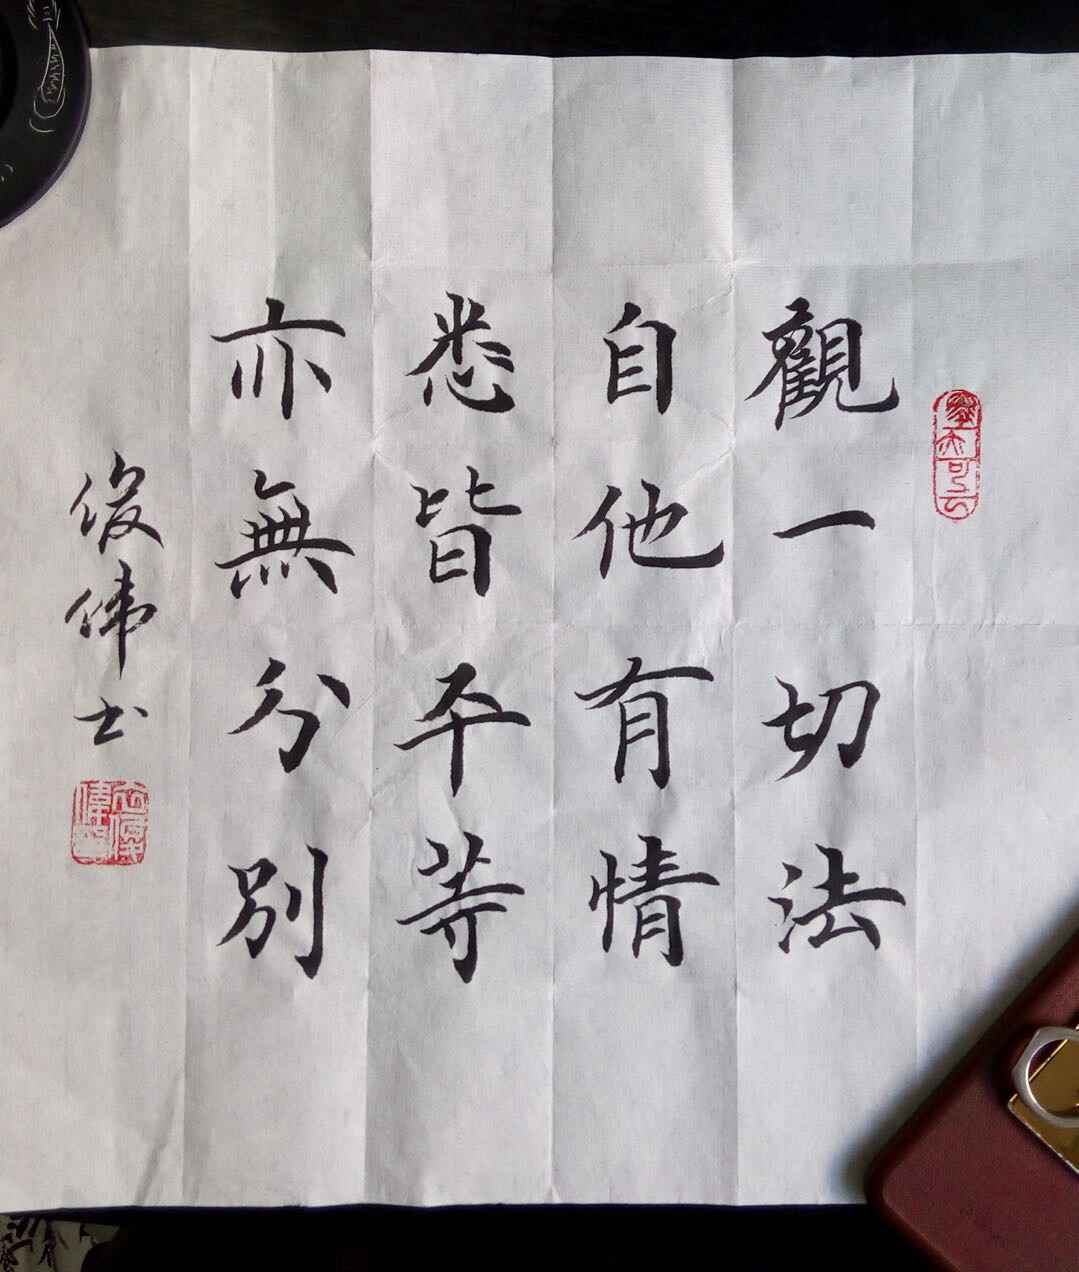 觀一切法
自他有情
悉皆平等
亦無分別
俊伟